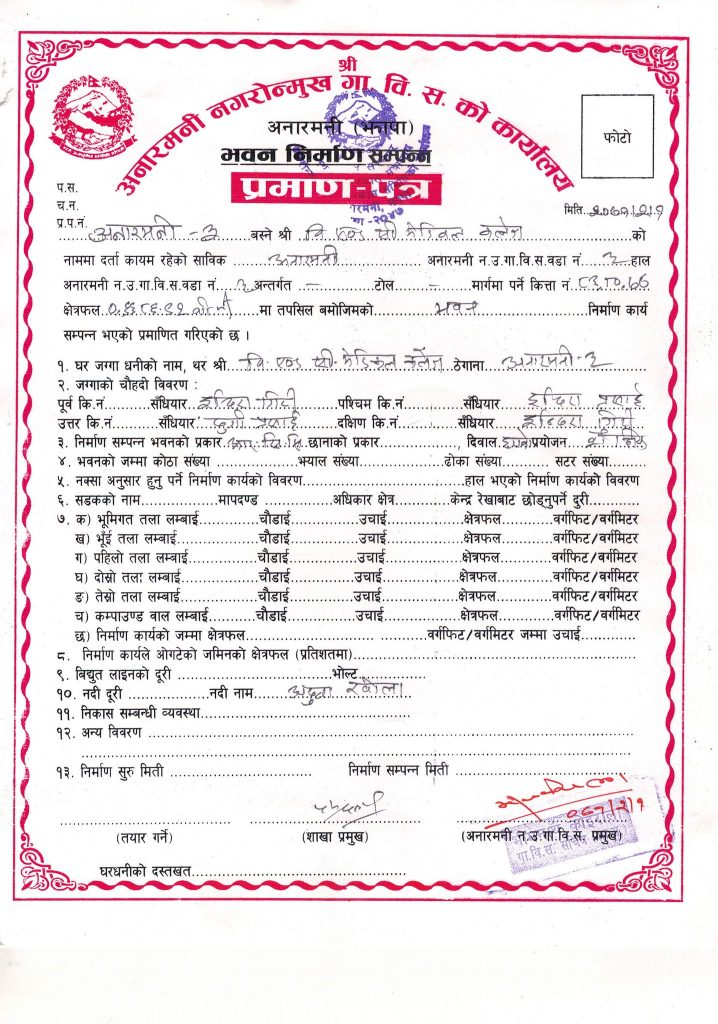 श्री
अनारमनी नगरोन्मुख गा. वि. स. को कार्यालय
अनारमनी (झापा)
भवन निर्माण सम्पन्न
प्रमाण-पत्र
फोटो
प.स.
च.न.
प्र.प.नं.
मिति
अनारमनी - ३ बस्ने श्री बि एण्ड सी मेडिकल कलेज को
नाममा दर्ता कायम रहेको साविक अनारमनी अनारमनी न.उ.गा.वि.स.वडा नं. ३ हाल
अनारमनी न.उ.गा.वि.स.वडा नं ३ अन्तर्गत - टोल - मार्गमा पर्ने कित्ता नं
क्षेत्रफल मा तपसिल बमोजिमको भवन निर्माण कार्य
सम्पन्न भएको प्रमाणित गरिएको छ ।
१. घर जग्गा धनीको नाम, थर श्री बि. एण्ड सी. मेडिकल कलेज ठेगाना अनारमनी-३
२. जग्गाको चौहदी विवरण :
पूर्व कि.नं. सँधियार इन्दिरा गिरी पश्चिम कि.नं. सँधियार इन्दिरा प्रसाई
उत्तर कि.नं. सँधियार प्रसाई दक्षिण कि.नं. सँधियार इन्दिरा गिरी
३. निर्माण सम्पन्न भवनको प्रकार आर. सि. सि. छानाको प्रकार दिवाल प्रयोजन
४. भवनको जम्मा कोठा संख्या भयाल संख्या ढोका संख्या सटर संख्या
५. नक्सा अनुसार हुनु पर्ने निर्माण कार्यको विवरण हाल भएको निर्माण कार्यको विवरण
६. सडकको नाम मापदण्ड अधिकार क्षेत्र केन्द्र रेखाबाट छोड्नुपर्ने दुरी
७. क) भूमिगत तला लम्बाई चौडाई उचाई क्षेत्रफल वर्गफिट/वर्गमिटर
ख) भूँई तला लम्बाई चौडाई उचाई क्षेत्रफल वर्गफिट/वर्गमिटर
ग) पहिलो तला लम्बाई चौडाई उचाई क्षेत्रफल वर्गफिट/वर्गमिटर
घ) दोस्रो तला लम्बाई चौडाई उचाई क्षेत्रफल वर्गफिट/वर्गमिटर
ङ) तेस्रो तला लम्बाई चौडाई उचाई क्षेत्रफल वर्गफिट/वर्गमिटर
च) कम्पाउण्ड वाल लम्बाई चौडाई उचाई क्षेत्रफल वर्गफिट/वर्गमिटर
छ) निर्माण कार्यको जम्मा क्षेत्रफल वर्गफिट/वर्गमिटर जम्मा उचाई
८. निर्माण कार्यले ओगटेको जमिनको क्षेत्रफल (प्रतिशतमा)
९. बिद्युत लाइनको दूरी भोल्ट
१०. नदी दूरी नदी नाम अदुवा खोला
११. निकास सम्बन्धी व्यवस्था
१२. अन्य विवरण
१३. निर्माण सुरु मिती निर्माण सम्पन्न मिती
(तयार गर्ने) (शाखा प्रमुख) (अनारमनी न.उ.गा.वि.स. प्रमुख)
घरधनीको दस्तखत